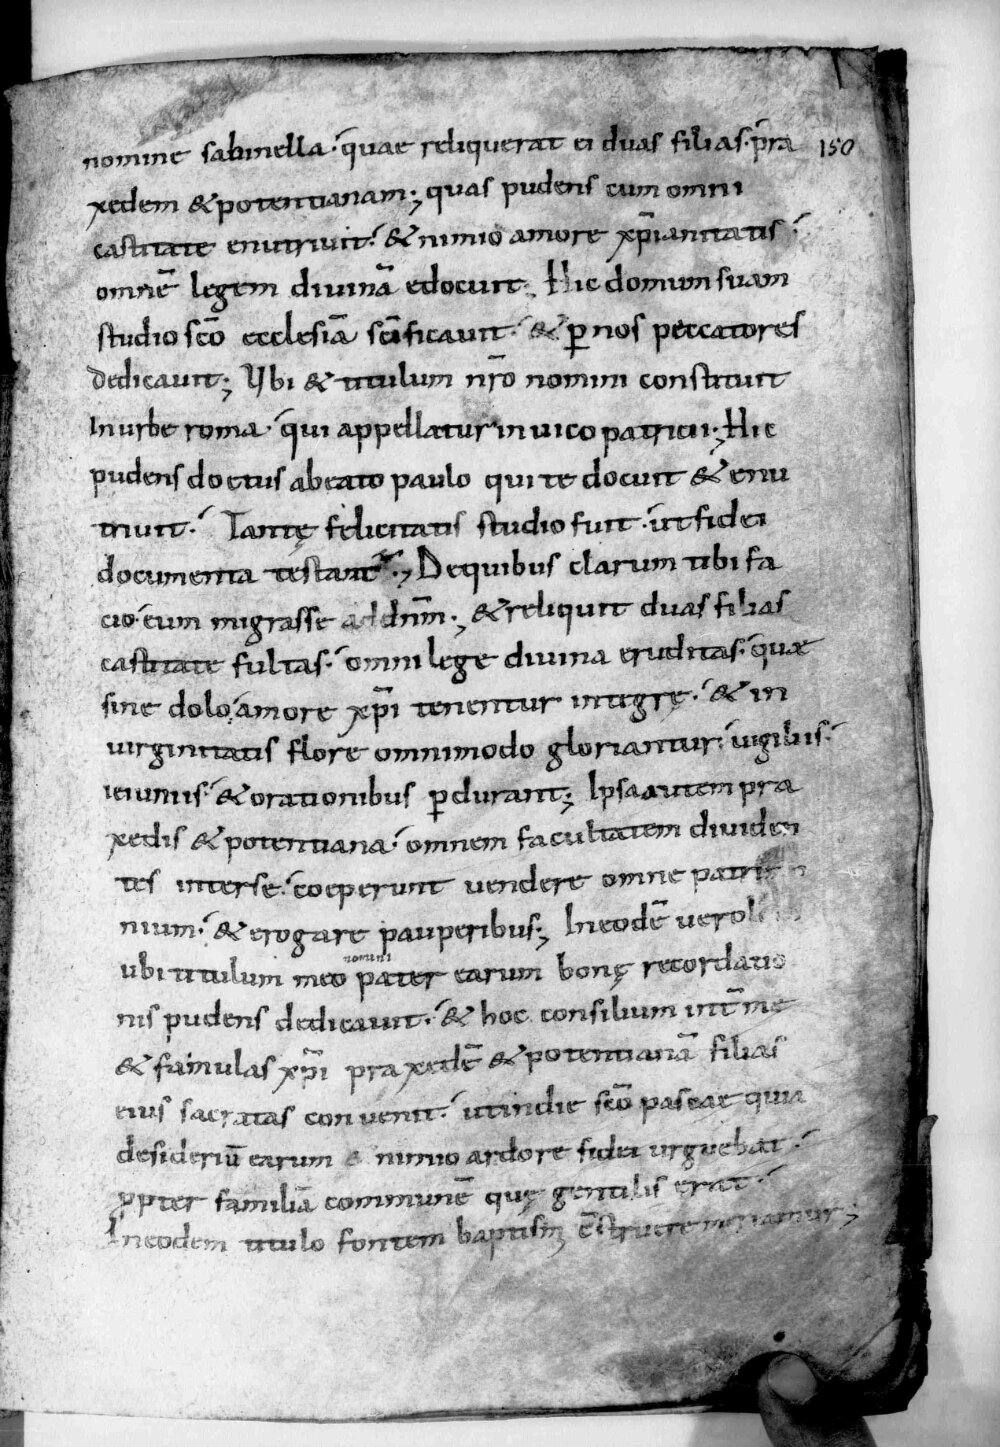 nomine sabinella. quae reliquerat ei duas filias. pra 150
xedem & potentianam; quas pudens cum omni
castitate enutriuit. & nimio amore xp̅ianitatis
omnē legem diuinā edocuit; Hic domum suam
studio sc̅o ecclesiā sc̅ificauit. & p̱ nos peccatores
dedicauit; Ubi & titulum nr̅o nomini constituit
In urbe roma. qui appellatur in uico patricii; Hic
pudens doctus a beato paulo qui te docuit & enu
triuit. Tantę felicitatis studio fuit. ut fidei
documenta testant᷑; De quibus clarum tibi fa
cio. eum migrasse ad dn̅m; & reliquit duas filias
castitate fultas. omni lege diuina eruditas. quae
sine dolo amore xp̅i tenentur integrę. & in
uirginitatis flore omnimodo gloriantur. uigiliis.
ieiuniis. & orationibus p̱durant; Ipsa autem pra
xedis & potentiana. omnem facultatem diuiden
tes inter se. coeperunt uendere omne patri
nium. & erogare pauperibus; In eodē uero
ubi titulum meo nomini pater earum bonę recordatio
nis pudens dedicauit. & hoc consilium int̅ me
& famulas xp̅i praxedē & potentianā filias
eius sacratas conuenit. ut in die sc̅o pascae quia
desideriū earum nimio ardore fidei urguebat.
ꝓpter familiā communē quę gentilis erat.
In eodem titulo fontem baptism̅ c̅struere